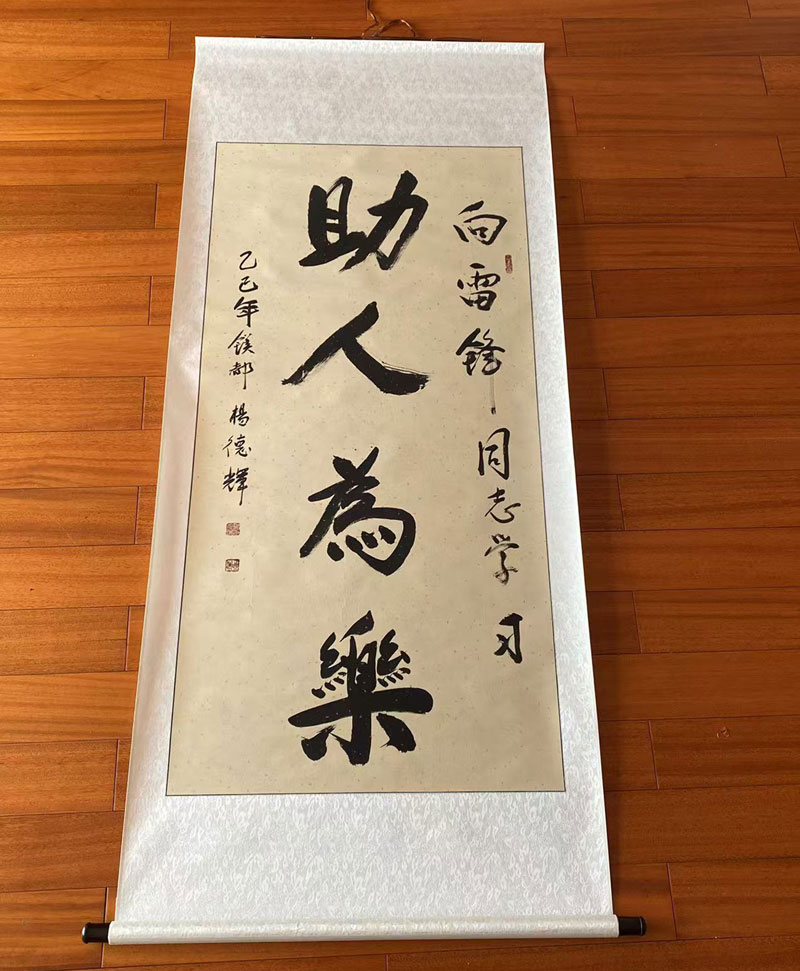 向雷鋒同志学习
助人為樂
乙巳年鎂都 楊德輝